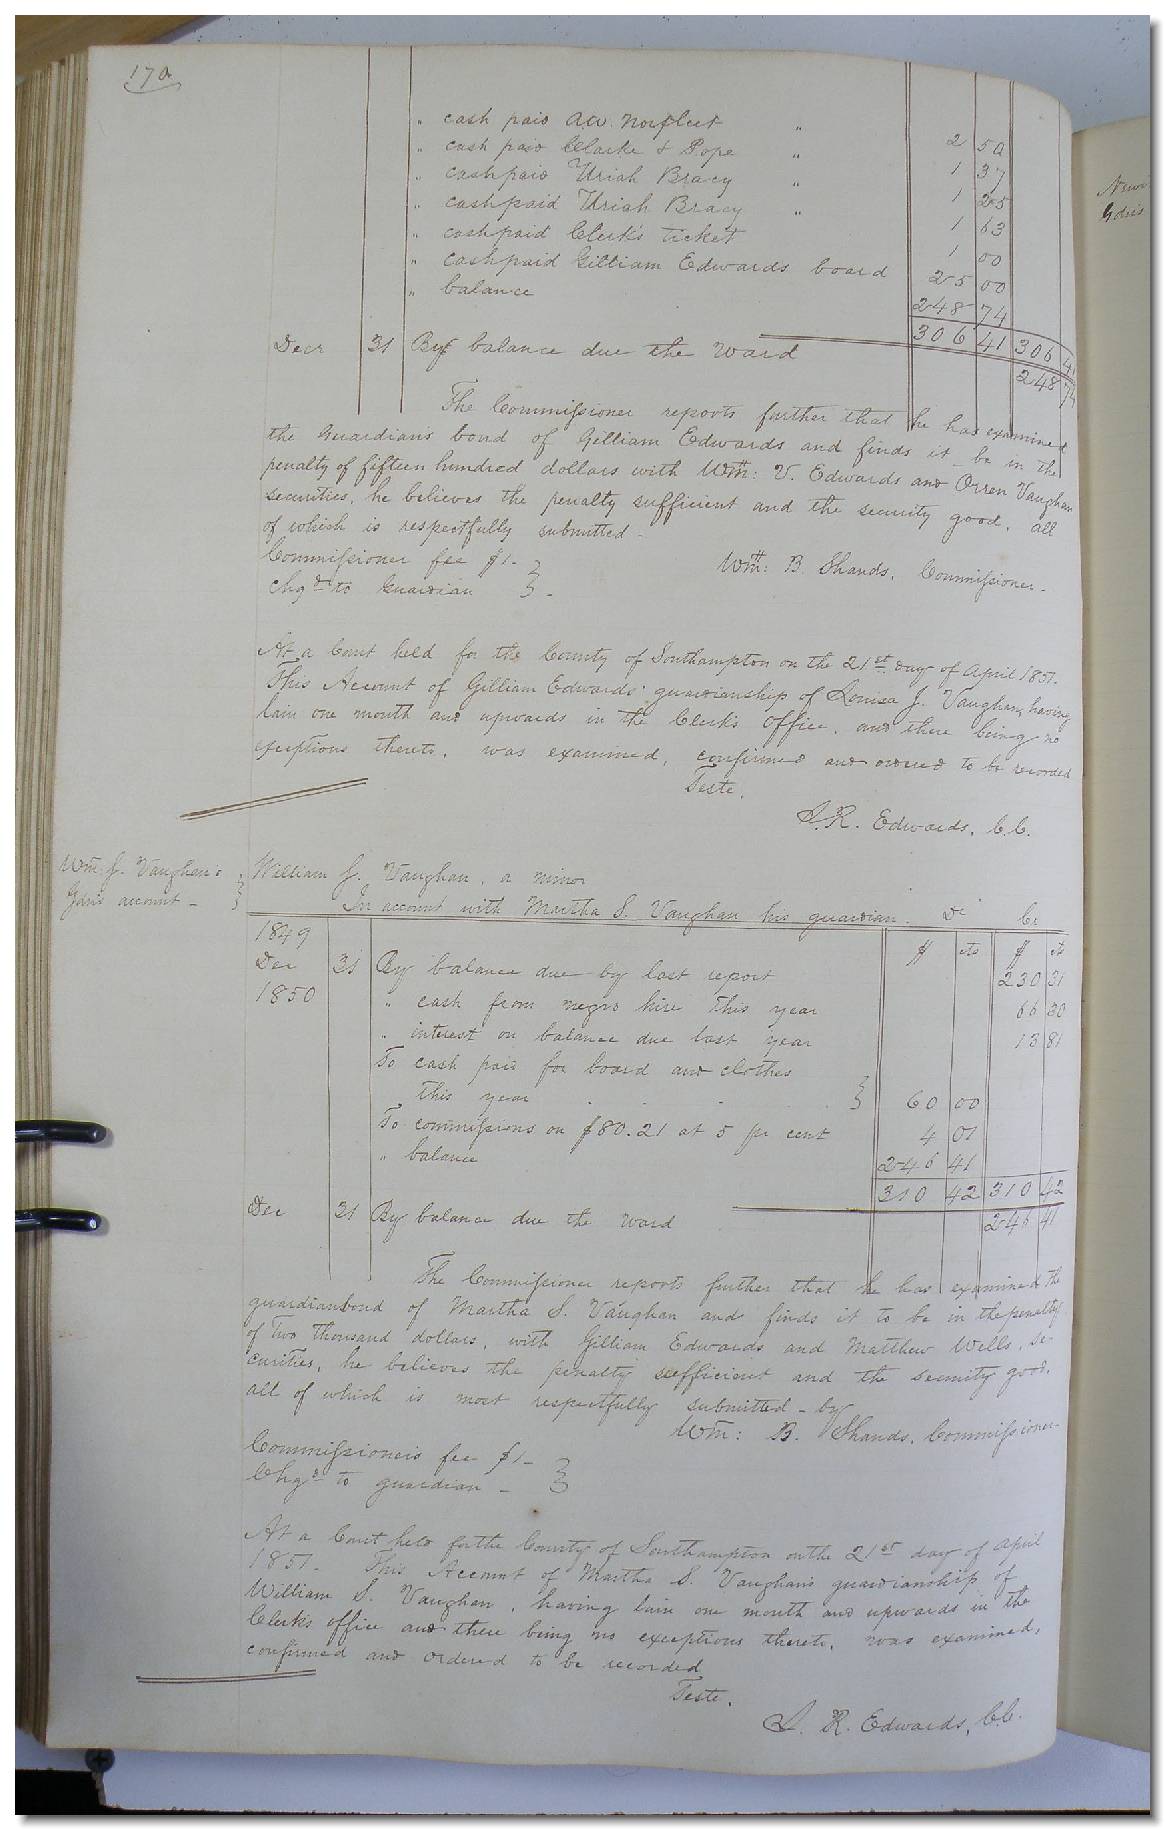 170
" cash paid A.W. Norfleet " 2 50
" cash paid Clarke & Pope " 1 37
" cash paid Uriah Bracy " 1 25
" cash paid Uriah Bracy " 1 63
" cash paid Clerk's ticket 1 00
" cash paid Gilliam Edwards board 25 00
" balance 248 74
306 41 306 41
Decr 31 By balance due the Ward 248 74
The Commissioner reports further that he has examined
the Guardian's bond of Gilliam Edwards and finds it be in the
penalty of fifteen hundred dollars with Wm: V. Edwards and Orren Vaughan
securities, he believes the penalty sufficient and the security good, all
of which is respectfully submitted.
Commissioner fee $1-
Chgd to Guardian } -
Wm: B. Shands, Commissioner-
At a Court held for the County of Southampton on the 21st day of April 1851.
This Account of Gilliam Edwards' guardianship of Louisa J. Vaughan, having
lain one month and upwards in the Clerk's Office, and there being no
exceptions thereto, was examined, confirmed and ordered to be recorded
Teste.
L. R. Edwards, C.C.
Wm J. Vaughan's
Gdn's account -
William J. Vaughan, a minor
In account with Martha S. Vaughan his guardian. Dr Cr
1849 $ cts $ cts
Dec 31 By balance due by last report 230 31
1850 " cash from negro hire this year 66 30
" interest on balance due last year 13 81
To cash paid for board and clothes
this year } 60 00
To commissions on $80.21 at 5 pr cent 4 01
" balance 246 41
310 42 310 42
Dec 31 By balance due the ward 246 41
The Commissioner reports further that he has examined the
guardianbond of Martha S. Vaughan and finds it to be in the penalty
of Two thousand dollars, with Gilliam Edwards and Matthew Wells, se-
curities, he believes the penalty sufficient and the security good.
all of which is most respectfully submitted - by
Wm: B. Shands, Commissioner-
Commissioner's fee $1-
Chgd to guardian - }
At a Court held for the County of Southampton on the 21st day of April
1851. This Account of Martha S. Vaughan's guardianship of
William S. Vaughan, having lain one month and upwards in the
Clerk's office and there being no exceptions thereto, was examined,
confirmed and ordered to be recorded
Teste.
L. R. Edwards, C.C.